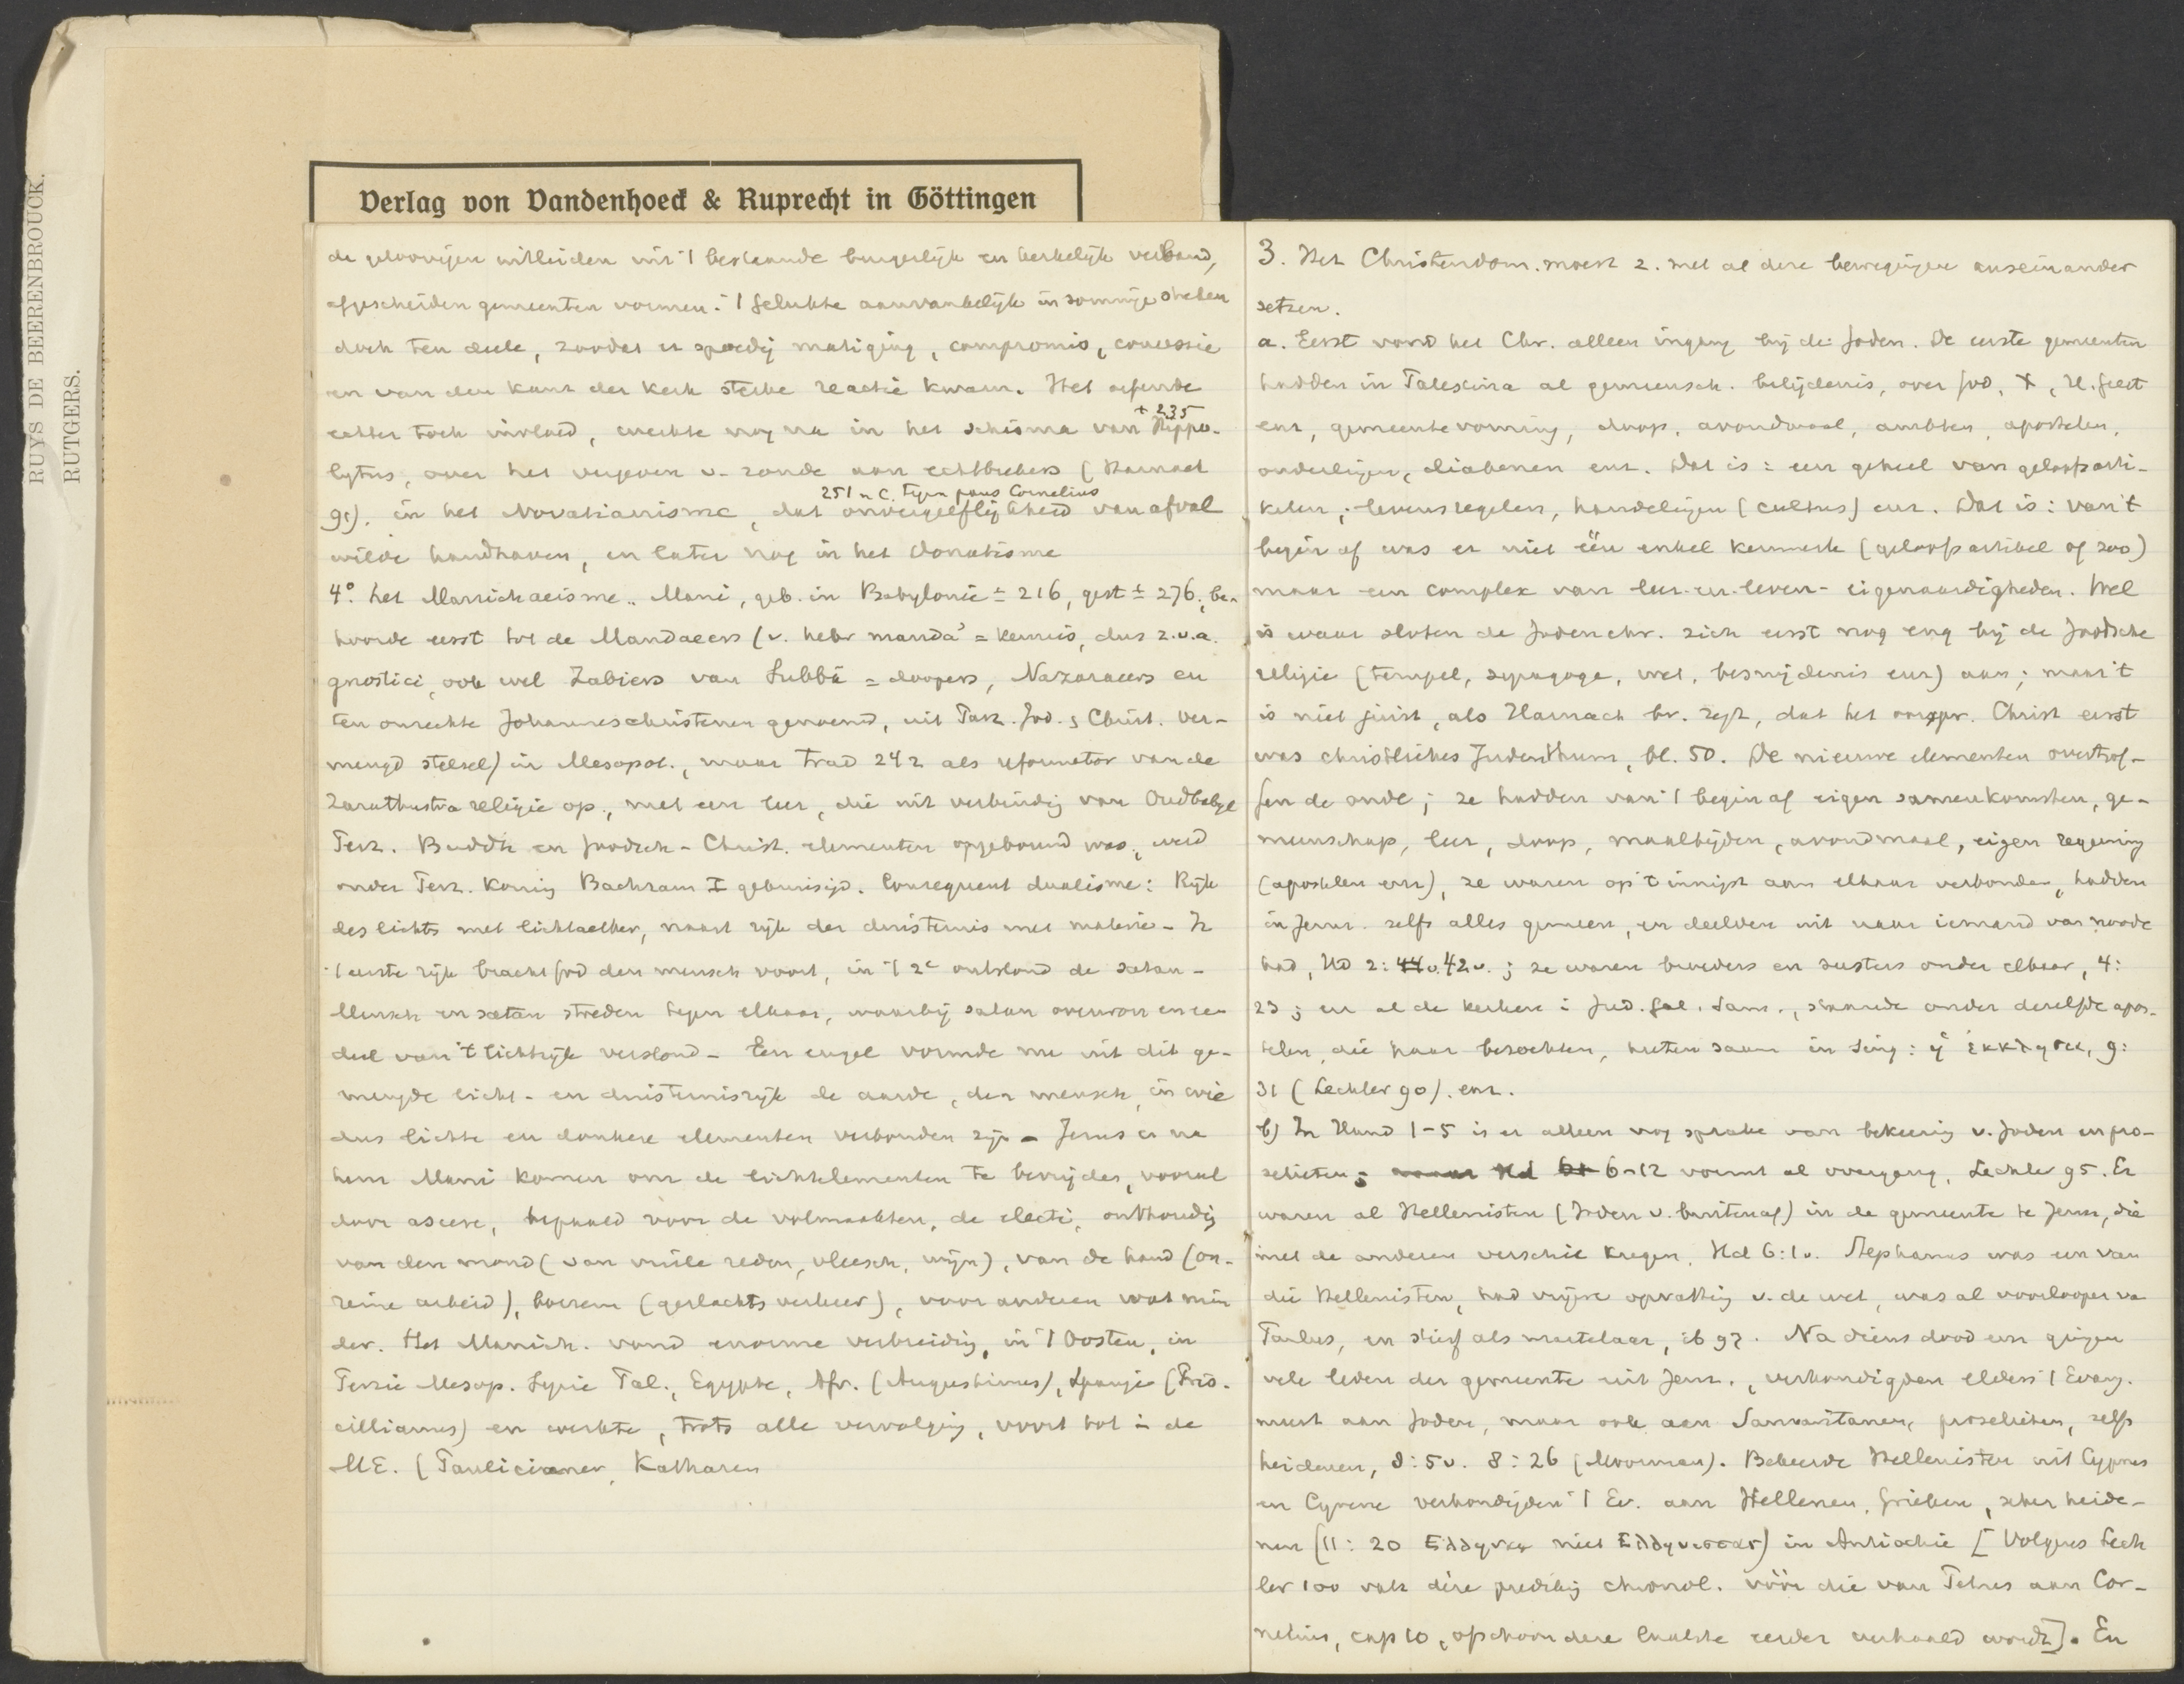 RUYS DE BEERENBROUCK.
RUTGERS.
Verlag von Vandenhoeck & Ruprecht in Göttingen
de geloovigen uitleiden uit 't bestaande burgerlijk en kerkelijk verband,
afgescheiden gemeenten vormen. 't Gelukte aanvankelijk in sommige steden
doch ten deele, zoodat er spoedig matiging, compromis, concessie
en van den kant der kerk sterke reactie kwam. Het oefende
echter toch invloed, werkte nog na in het schisma van Hippo-
+ 235
lytus, over het vergeven v. zonde aan echtbrekers (Harnack
91). in het Novatianisme, dat onvergeeflijkheid van afval
251 n C. tegen paus Cornelius
wilde handhaven, en later nog in het Donatisme
4° het Manichaeisme. Mani, geb. in Babylonie ± 216, gest ± 276, be-
hoorde eerst tot de Mandaeers (v. hebr manda' = kennis, dus z.v.a.
gnostici, ook wel Zabiers van Subba = doopers, Nazoraeers en
ten onrechte Johanneschristenen genoemd, uit Parz. Jod. & Christ. ver-
mengd stelsel) in Mesopot., maar trad 242 als reformator van de
Zarathustra religie op, met een leer, die uit verbinding van Oudbabyl
Perz. Buddh en Joodsch-Christ. elementen opgebouwd was, werd
onder Perz. koning Bachram I gekruisigd. Consequent dualisme: Rijk
des lichts met lichtaether, naast rijk der duisternis met materie - In
't eerste rijk bracht God den mensch voort, in 't 2e ontstond de satan -
Mensch en satan streden tegen elkaar, waarbij satan overwon en een
deel van 't lichtrijk verslond - Een engel vormde nu uit dit ge-
mengde licht- en duisternisrijk de aarde, den mensch, in wie
dus lichte en donkere elementen verbonden zijn - Jezus en na
hem Mani komen om de lichtelementen te bevrijden, vooral
door ascese, bepaald voor de volmaakten, de electi, onthouding
van den mond (van vuile reden, vleesch, wijn), van de hand (on-
reine arbeid), boezem (geslachtsverkeer), voor anderen wat min
der. Het Manich. vond enorme verbreiding, in 't Oosten, in
Perzie Mesop. Syrie Pal., Egypte, Afr. (Augustinus), Spanje (Pris-
cillianus) en werkte, trots alle vervolging, voort tot in de
ME. (Paulicianer, Katharen
3. Het Christendom moest z. met al deze bewegingen auseinander
setzen.
a. Eerst vond het Chr. alleen ingang bij de Joden. De eerste gemeenten
hadden in Palestina al gemeensch. belijdenis, over God, X, H. Geest
enz, gemeentevorming, doop, avondmaal, ambten, apostelen,
ouderlingen, diakenen enz. Dat is: een geheel van geloofsarti-
kelen, levensregelen, handelingen (cultus) enz. Dat is: van 't
begin af was er niet één enkel kenmerk (geloofsartikel of zoo)
maar een complex van leer-en-leven-eigenaardigheden. Wel
is waar sloten de Jodenchr. zich eerst nog eng bij de Joodsche
religie (tempel, synagoge, wet, besnijdenis enz) aan; maar 't
is niet juist, als Harnach bv. zegt, dat het oorspr. Christ eerst
was christliches Judenthum, bl. 50. De nieuwe elementen overtrof-
fen de oude; ze hadden van 't begin af eigen samenkomsten, ge-
meenschap, leer, doop, maaltijden, avondmaal, eigen regeering
(apostelen enz), ze waren op 't innigst aan elkaar verbonden, hadden
in Jeruz. zelfs alles gemeen, en deelden uit naar iemand van noode
had, Hd 2: 44 v. 42 v.; ze waren broeders en zusters onder elkaar, 4:
23; en al de kerken in Jud. Gal. Sam., staande onder dezelfde apos-
telen, die haar bezochten, heeten saam in sing: ἡ ἐκκλησια, 9:
31 (Lechler 90). enz.
b) In Hand 1-5 is er alleen nog sprake van bekeering v. Joden en pro-
selieten; maar Hd 6-12 vormt al overgang, Lechler 95. Er
waren al Hellenisten (Joden v. buitenaf) in de gemeente te Jeruz, die
met de anderen verschil kregen, Hd 6:1 v. Stephanus was een van
die Hellenisten, had vrijere opvatting v. de wet, was al voorlooper va
Paulus, en stierf als martelaar, ib 97. Na diens dood een gingen
vele leden der gemeente uit Jeruz., verkondigden elders 't Evang.
meest aan Joden, maar ook aan Samaritanen, proselieten, zelfs
heidenen, 8:5 v. 8:26 (Moorman). Bekeerde Hellenisten uit Cyprus
en Cyrene verkondigden 't Ev. aan Hellenen, Grieken, zeker heide-
nen (11:20 Ελληνας niet Ελληνιστας) in Antiochie [Volgens Lech
ler 100 valt deze prediking chronol. vóór die van Petrus aan Cor-
nelius, cap 10, ofschoon deze laatste eerder verhaald wordt]. En